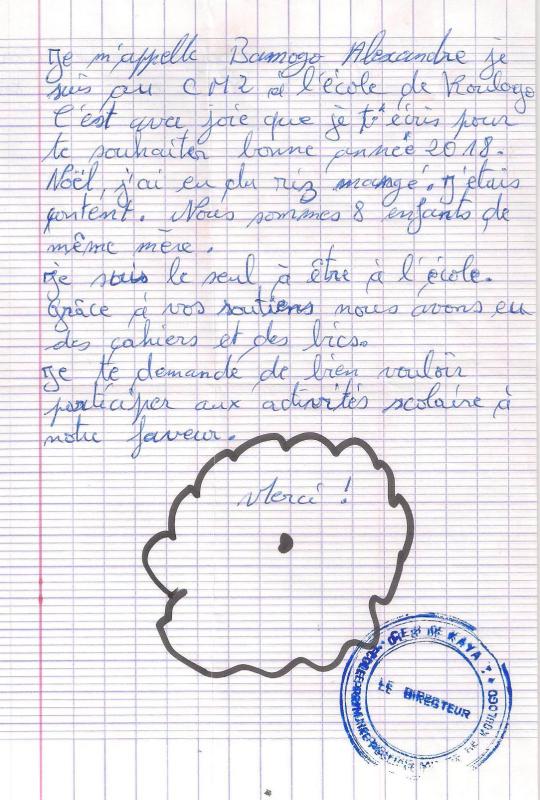 Je m'appelle Bamogo Alexandre je
suis au CM2 à l'école de Koulogo
C'est avec joie que je t'écris pour
te souhaiter bonne année 2018.
Noël, j'ai eu du riz mangé. J'étais
content. Nous sommes 8 enfants de
même mère.
Je suis le seul à être à l'école.
Grâce à vos soutiens nous avons eu
des cahiers et des bics.
Je te demande de bien vouloir
participer aux activités scolaire à
notre faveur.
Merci !
DE KAYA
LE DIRECTEUR
DE KOULOGO